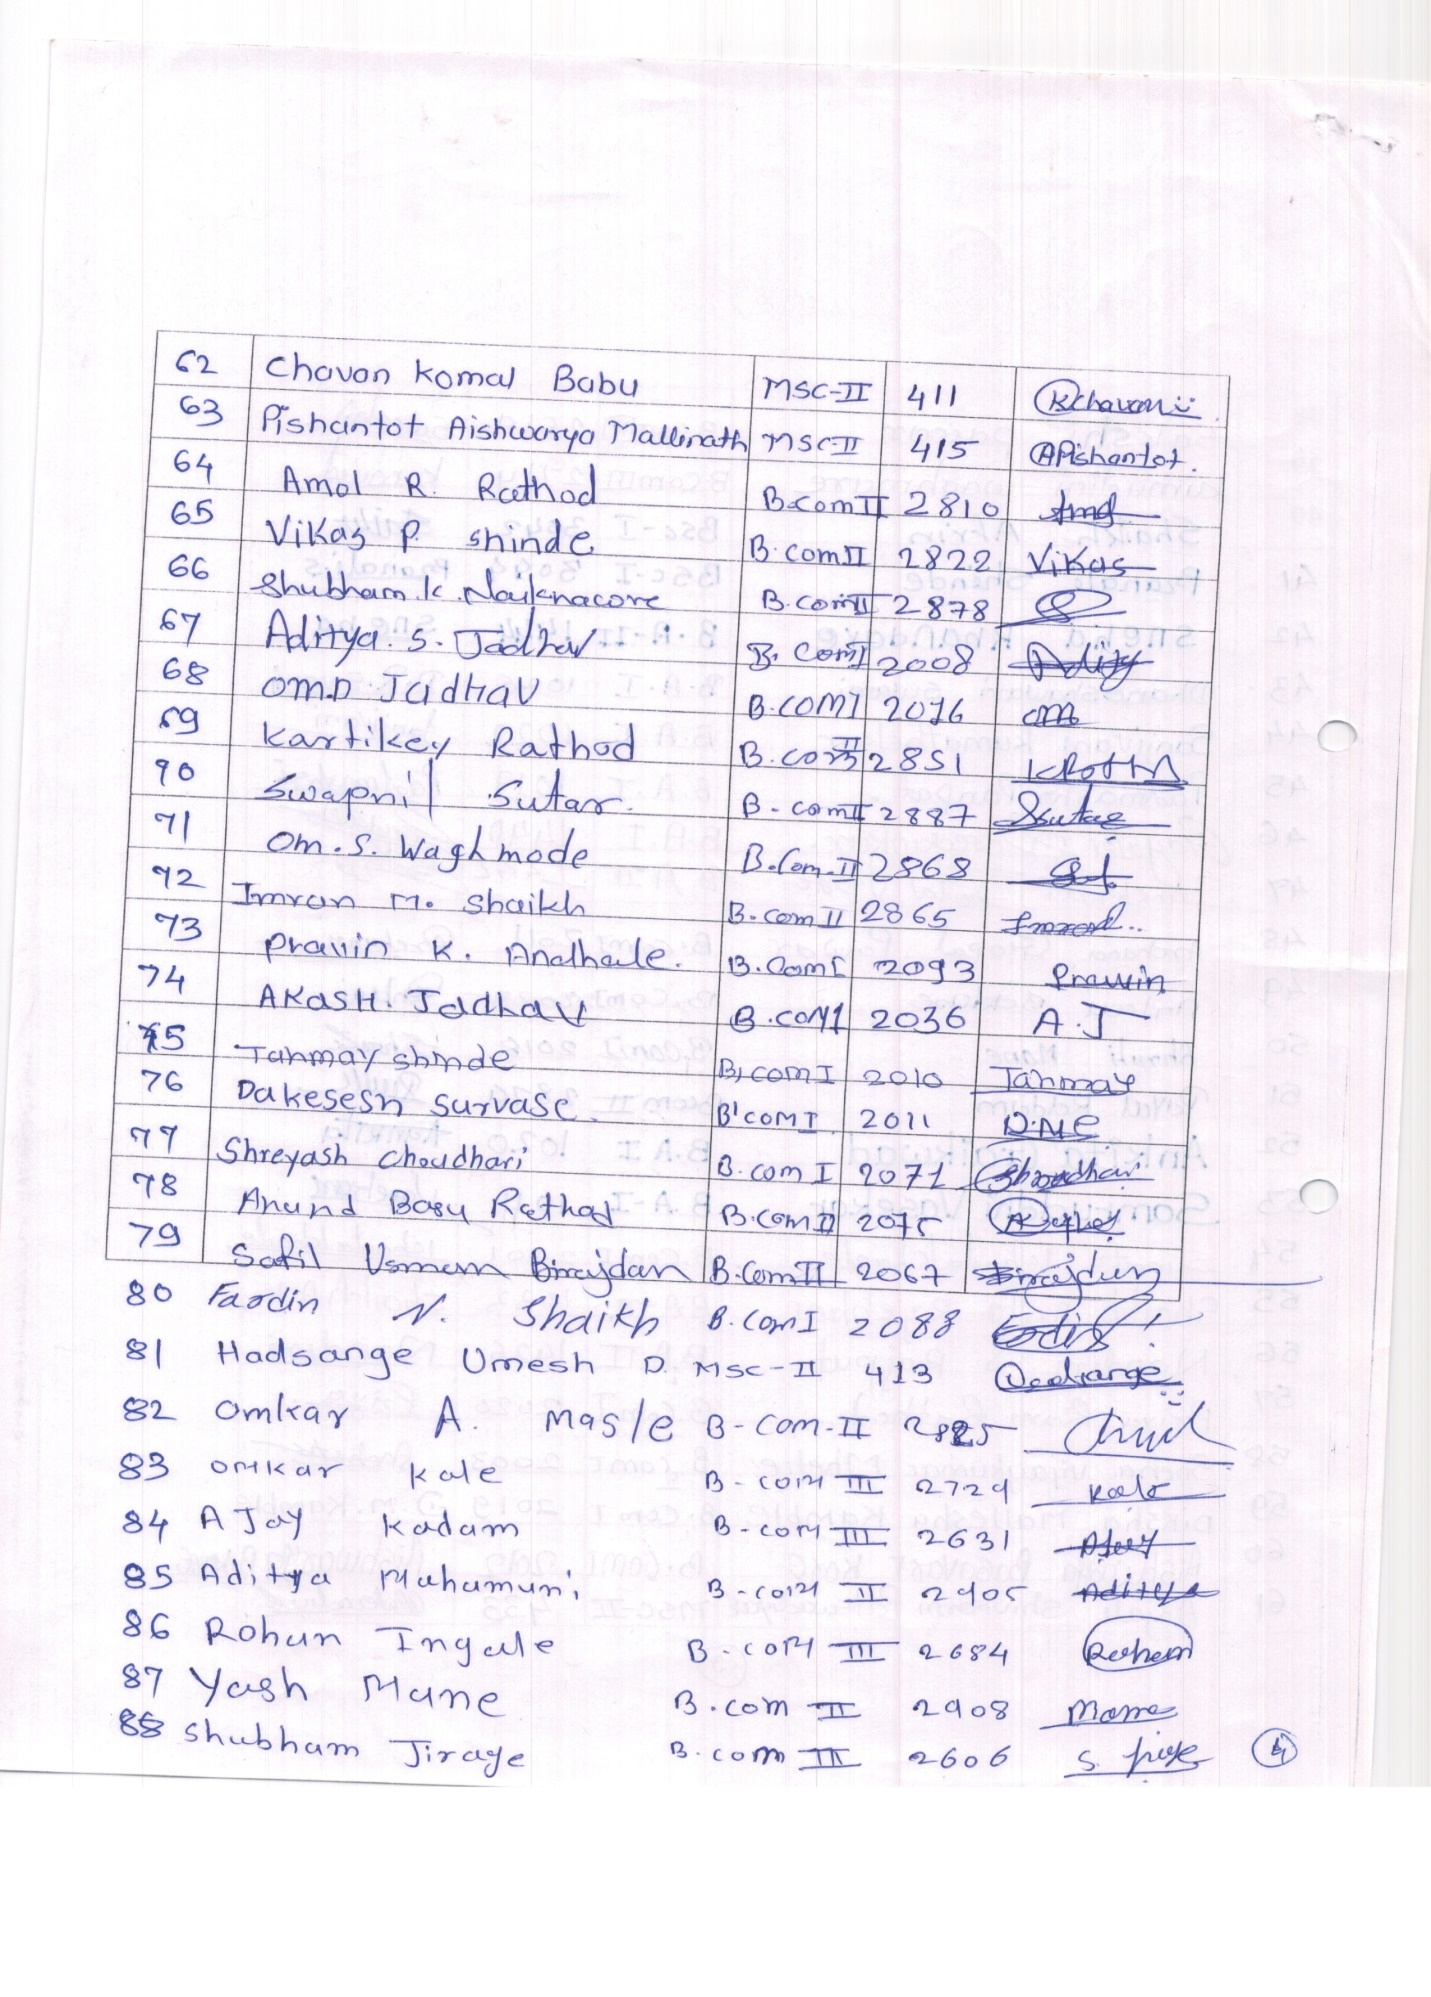 62 Chavan Komal Babu MSC-II 411 Kchavan
63 Pishantot Aishwarya Mallinath MSC-II 415 APishantot.
64 Amol R. Rathod B.com II 2810
65 Vikas P shinde B.com II 2822 Vikas
66 Shubham.K.Naiknaware B.com II 2878
67 Aditya.S.Jadhav B.com I 2008 Adity
68 OM.D Jadhav B.COM I 2076 om
69 Kartikey Rathod B.com II 2851
70 Swapnil Sutar. B-com II 2887 Sutar
71 Om.S. Waghmode B.Com-II 2868
72 Imran M. Shaikh B.com II 2865
73 Pravin K. Andhale. B.Com I 2093 Pravin
74 AKASH. Jadhav B.COM I 2036 A.J
75 Tanmay shinde B.COM I 2010 Tanmay
76 Dakesesh Survase. B.COM I 2011
77 Shreyash Choudhari B.com I 2071 Choudhari
78 Anand Basu Rathod B.COM II 2075
79 Sahil Usman Birajdar B.Com II 2067 Birajdar
80 Fardin N. Shaikh B.Com I 2088
81 Hadsange Umesh D. MSC-II 413 Hadsange
82 Omkar A. Masle B-Com-II 2825
83 Omkar Kale B-COM III 2729 Kale
84 AJay Kadam B-COM III 2631 Ajay
85 Aditya Mahamuni B-COM II 2905 Aditya
86 Rohan Ingale B-COM III 2684 Roham
87 Yash Mane B.com II 2908 Mane
88 Shubham Jirage B.com III 2606 S.
4